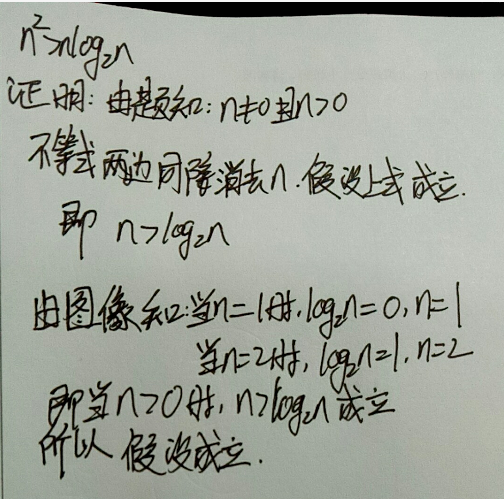 n²>nlog₂n
证明:由题知:n≠0且n>0
不等式两边同除消去n.假设上式成立.
即 n>log₂n
由图像知:当n=1时,log₂n=0,n=1
当n=2时,log₂n=1,n=2
即当n>0时,n>log₂n成立
所以 假设成立.